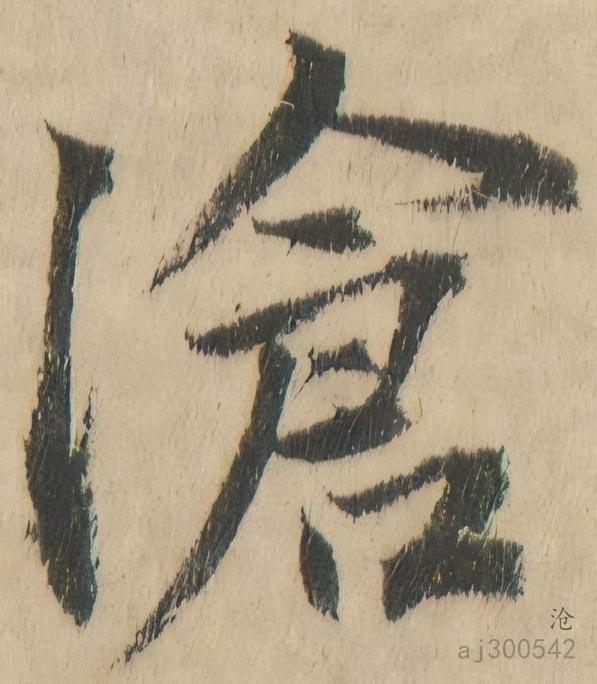 滄
沧
aj300542